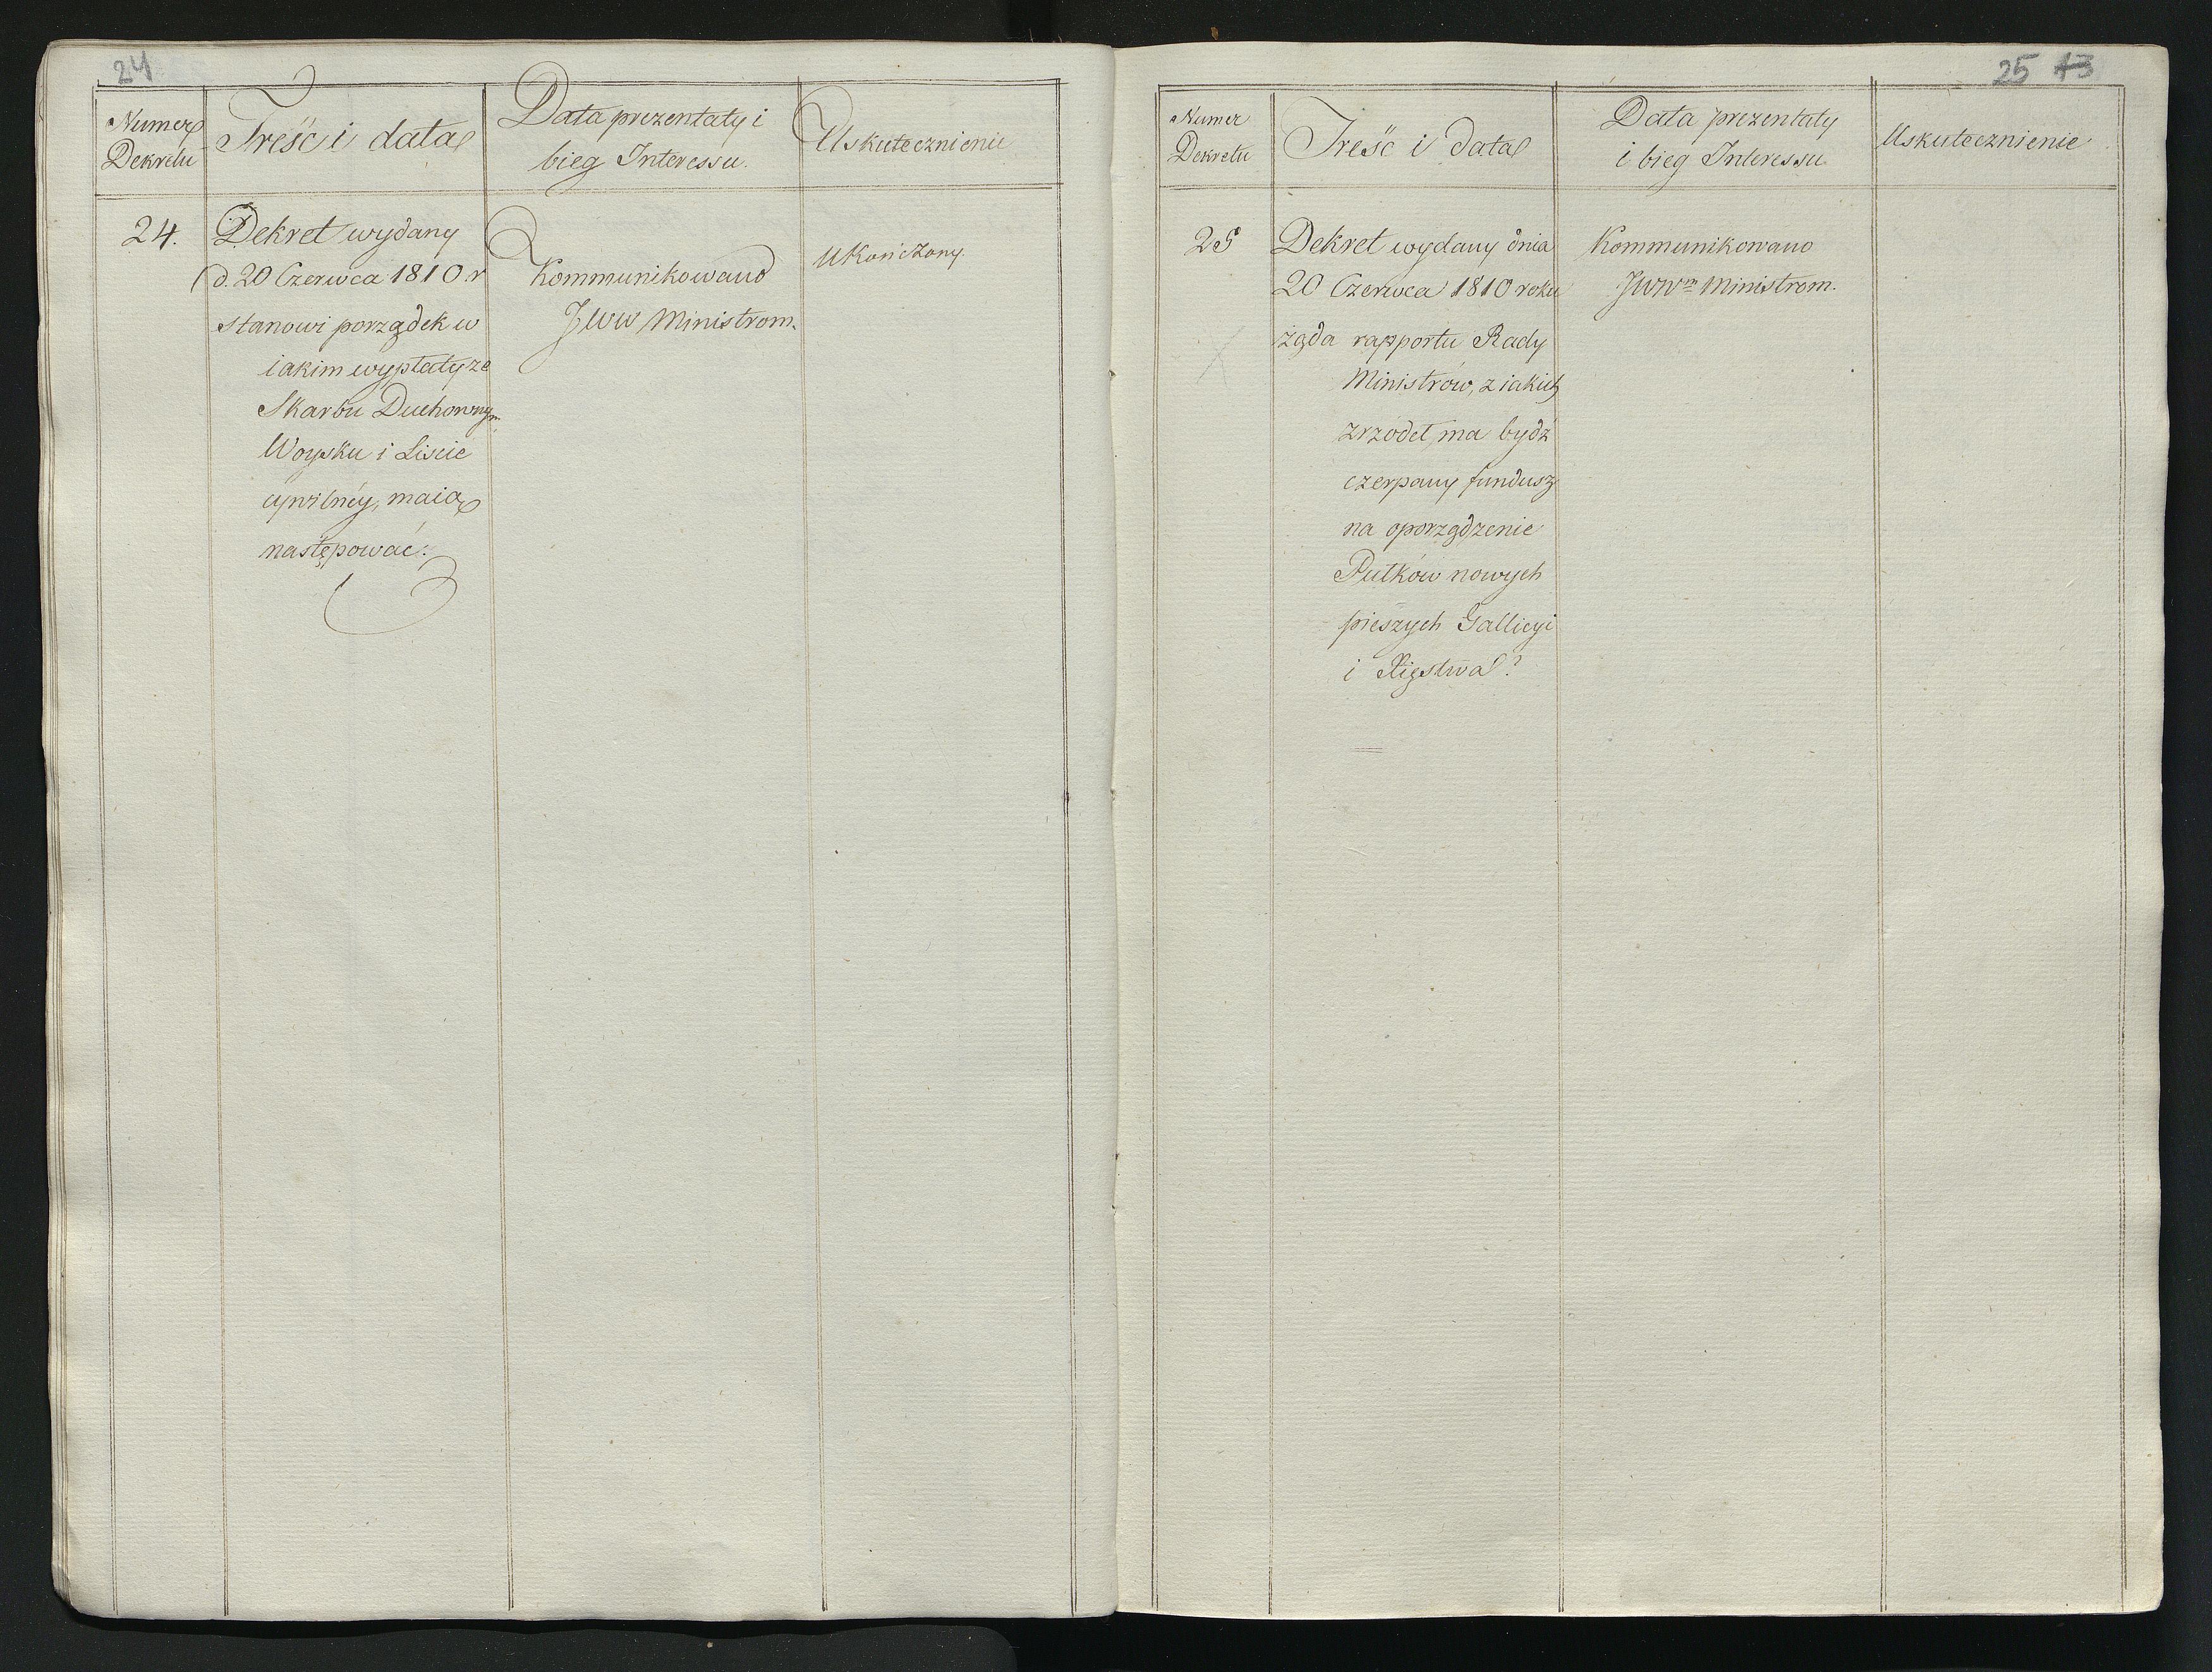 24
Numer
Dekretu
Treść i data
Data prezentaty i
bieg Interessu.
Uskutecznienie
24.
Dekret wydany
d. 20 Czerwca 1810. r
stanowi porządek w
iakim wypłaty ze
Skarbu Duchownym
Woysku i Liscie
cywilnéy, maią
następować.
Kommunikowano
JWW Ministrom.
Ukończony.
25 13
Numer
Dekretu
Treść i data
Data prezentaty
i bieg Interessu
Uskutecznienie
25
Dekret wydany dnia
20 Czerwca 1810 roku
żąda rapportu Rady
Ministrów, z iakich
zrzódeł, ma bydź
czerpany fundusz
na oporządzenie
Pułków nowych
pieszych Gallicyi
i Xięstwa?
Kommunikowano
JWWm Ministrom.